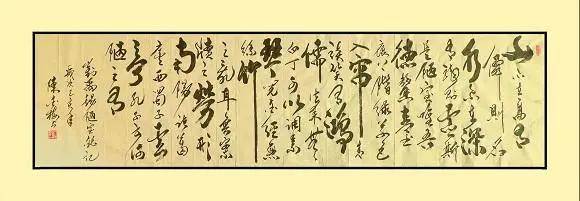 山不在高有
仙則名
水不在深
有龍則靈斯
是陋室唯吾
德馨苔
痕上階綠草色
入帘青
談笑有鴻
儒往來無
白丁可以調素
琴閱金經無
絲竹
之亂耳無案
牘之勞形
南陽諸葛
廬西蜀子雲
亭孔子云何
陋之有
劉禹錫陋室銘記